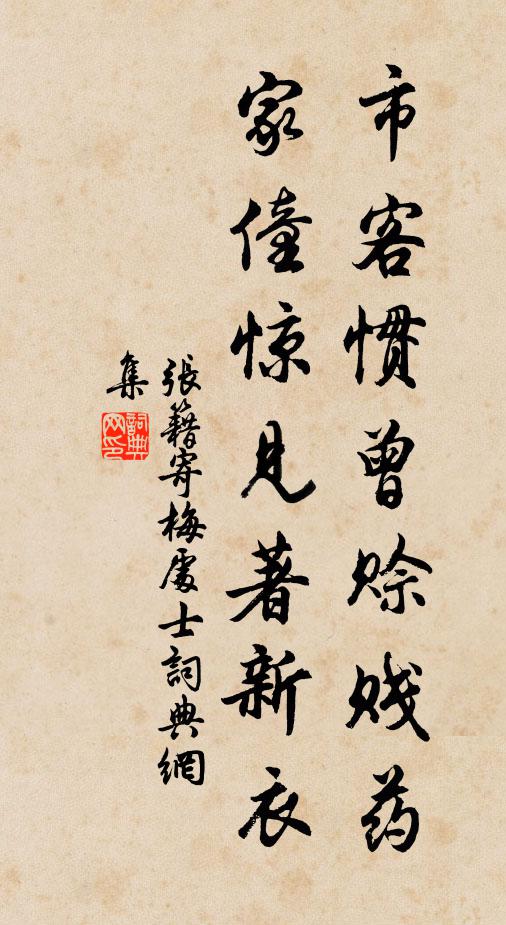 市客惯曾赊贱药
家僮惊见著新衣
張籍寄梅處士詞典網
集
詞典
网印